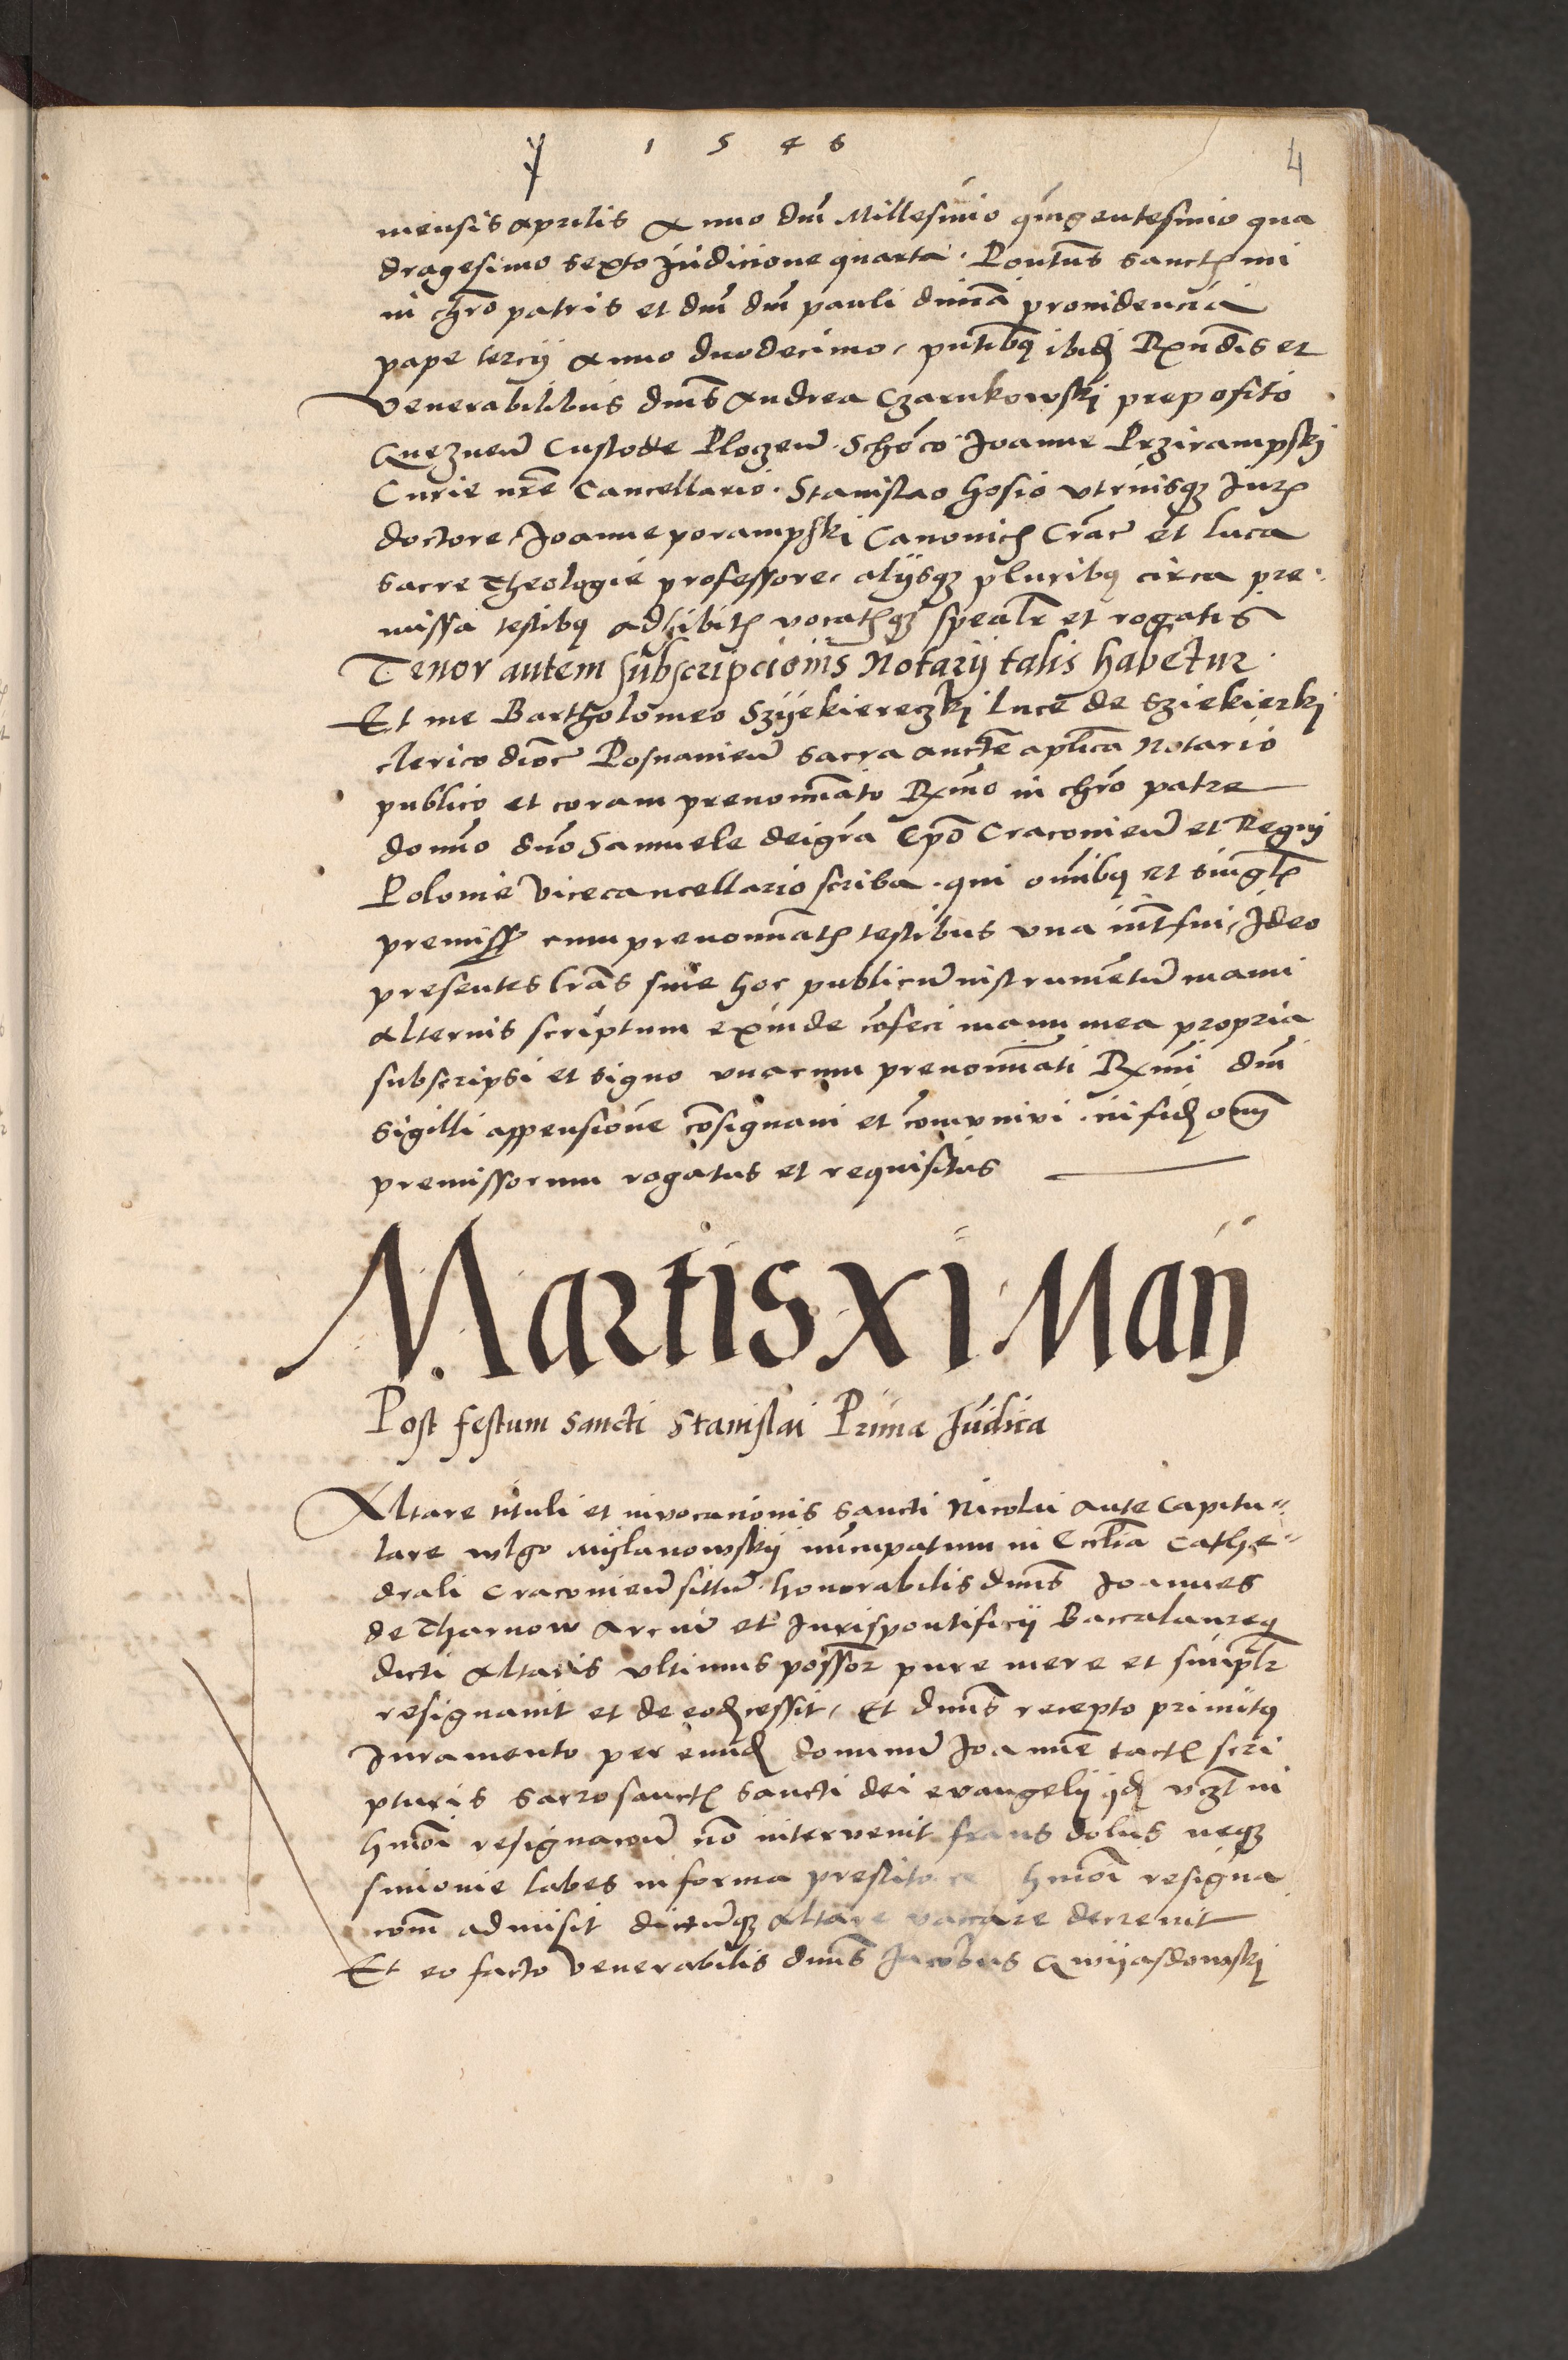 1 5 4 6
4
mensis aprilis Anno dnī Millesimo qūingentesimo qua
dragesimo sexto Indicione quarta. Pontus sanctmi
in chro patris et dnī dnī pauli diuīa prouidencia
pape tercij Anno duodecimo, pntibq ibid Rxndis et
Venerabilibus dnis Andrea Czarnkowskj preposito
Gnezneñ Custode Ploczeñ. Scho͞co Ioanne Przirampskj
Curie nr̄e Cancellario. Stanislao hosio vtriusqz Iur
doctore Ioanne porampski Canonic Crac̄ et luca
sacre Theologie professore, alijsqz pluribq circa pre-
missa testibq adhibit vocatqz spealr et rogatis
Tenor autem subscripcionis Notarij talis habetur.
Et me Bartholomeo Szyekiereczkj luce de Sziekierkj
clerico dioc̄ Posnanieñ sacra auctē aplica Notario
publico et coram prenomīato Rxmo in chro patre
domīo dn̄o Samuele deigr̄a Epō Cracouieñ et Regnj
Polonie Vicecancellario scriba. qui om̄ibq et singl
premiss cum prenomīat testibus vna int̄fui, Ideo
presentes lr̄as siue hoc publicū instrumētū manu
alterius scriptum exinde cōfeci manu mea propria
subscripsi et signo vnacum prenomīati Rxmi dnī
sigilli appensione cōsignaui et cōmuniui. in fid om̄
premissorum rogatus et requisitus
Martis XI Maij
Post festum Sancti Stanislai Prima Iudica
Altare tituli et inuocacionis sancti Nicolai ante Capitu-
lare wlgo Mylanowskij nūcupatum in Eccl̄ia Cathe-
drali Cracouieñ sittū. honorabilis dnus Ioannes
de Tharnow arciū et Iurispontificij Baccalaureq
dicti Altaris vltimus possor pure mere et simplr
resignauit et de eod cessit, Et dnus recepto primitq
Iuramento per eund dominū Ioannē tact scri
pturis sacrosanct sancti dei euangelij qd vz̄t in
hmōi resignacōe nō interuenit fraus dolus neqz
simonie labes in forma prestito hmōi resigna
com̄ admisit dictūqz Altare vacare decreuit
Et eo facto Venerabilis dnus Iacobus Gwyasdowskj